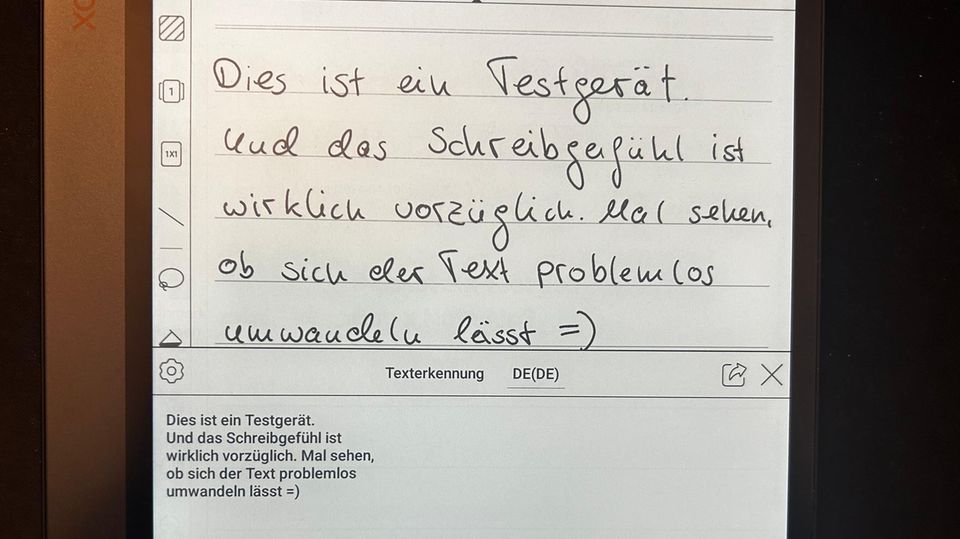 OX
1
1X1
Dies ist ein Testgerät.
Und das Schreibgefühl ist
wirklich vorzüglich. Mal sehen,
ob sich der Text problemlos
umwandeln lässt =)
Texterkennung DE(DE)
Dies ist ein Testgerät.
Und das Schreibgefühl ist
wirklich vorzüglich. Mal sehen,
ob sich der Text problemlos
umwandeln lässt =)